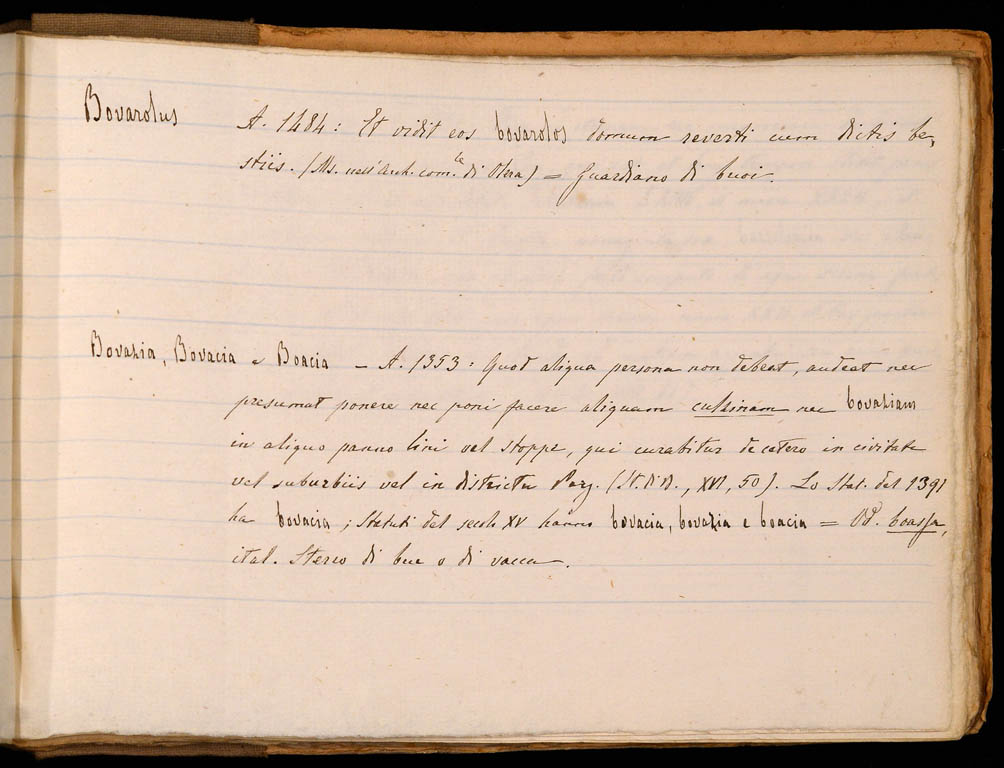 Bovarolus A. 1484: Et vidit eos bovarolos domum reverti cum dictis be,
stiis. (Ms. nell'Arch. com.le di Olera) = Guardiano di buoi.
Bovazia, Bovacia e Boacia – A. 1353: Quod aliqua persona non debeat, audeat nec
presumat ponere nec poni facere aliquam culzinam nec bovaziam
in aliquo panno lini vel stoppe, qui curabitur de cetero in civitate
vel suburbiis vel in districtu Perg. (St. D. N., XVI, 50). Lo Stat. del 1391
ha bovacia; Statuti del secolo XV hanno bovacia, bovazia e boacia = Od. boassa,
ital. Sterco di bue o di vacca.